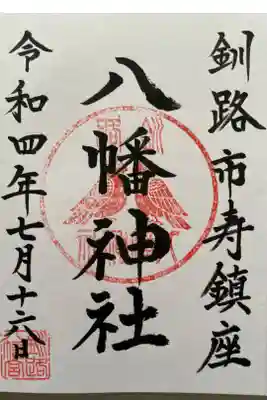 釧路市寿鎮座
八幡神社
令和四年七月十六日